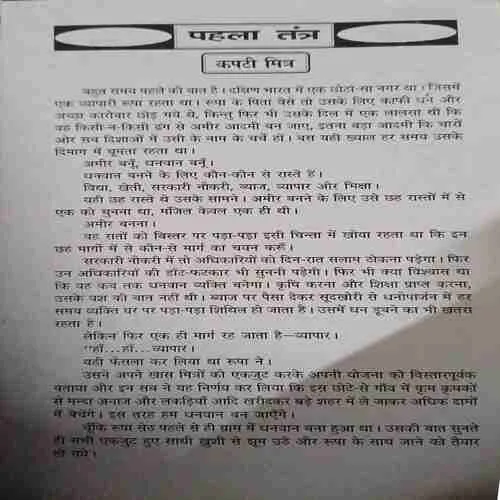 पहला तंत्र
कपटी मित्र
बहुत समय पहले की बात है। दक्षिण भारत में एक छोटा-सा नगर था। जिसमें
एक व्यापारी रूपा रहता था। रूपा के पिता वैसे तो उसके लिए काफी धन और
अच्छा कारोबार छोड़ गये थे, किन्तु फिर भी उसके दिल में एक लालसा थी कि
वह किसी-न-किसी ढंग से अमीर आदमी बन जाए, इतना बड़ा आदमी कि चारों
ओर सब दिशाओं में उसी के नाम के चर्चे हों। बस यही ख्याल हर समय उसके
दिमाग में घूमता रहता था।
अमीर बनूँ, धनवान बनूँ।
धनवान बनने के लिए कौन-कौन से रास्ते हैं।
विद्या, खेती, सरकारी नौकरी, ब्याज, व्यापार और भिक्षा।
यही छह रास्ते थे उसके सामने। अमीर बनने के लिए उसे छह रास्तों में से
एक को चुनना था, मंजिल केवल एक ही थी।
अमीर बनना।
वह रातों को बिस्तर पर पड़ा-पड़ा इसी चिन्ता में खोया रहता था कि इन
छह मार्गों में से कौन-से मार्ग का चयन करूँ।
सरकारी नौकरी में तो अधिकारियों को दिन-रात सलाम ठोकना पड़ेगा। फिर
उन अधिकारियों की डाँट-फटकार भी सुननी पड़ेगी। फिर भी क्या विश्वास था
कि वह कब तक धनवान व्यक्ति बनेगा। कृषि करना और शिक्षा प्राप्त करना,
उसके वश की बात नहीं थी। ब्याज पर पैसा देकर सूदखोरी से धनोपार्जन में हर
समय व्यक्ति घर पर पड़ा-पड़ा शिथिल हो जाता है। उसमें धन डूबने का भी खतरा
रहता है।
लेकिन फिर एक ही मार्ग रह जाता है—व्यापार।
"हाँ...हाँ...व्यापार।
यही फैसला कर लिया था रूपा ने।
उसने अपने खास मित्रों को एकजुट करके अपनी योजना को विस्तारपूर्वक
बताया और इन सब ने यह निर्णय कर लिया कि इस छोटे-से गाँव में कृषकों
से मन्दा अनाज और लकड़ियाँ आदि खरीदकर बड़े शहर में ले जाकर अधिक दामों
में बेचेंगे। इस तरह हम धनवान बन जाएँगे।
चूँकि रूपा सेठ पहले से ही ग्राम में धनवान बना हुआ था। उसकी बात सुनते
ही सभी एकजुट हुए साथी खुशी से झूम उठे और रूपा के साथ जाने को तैयार
हो गये।